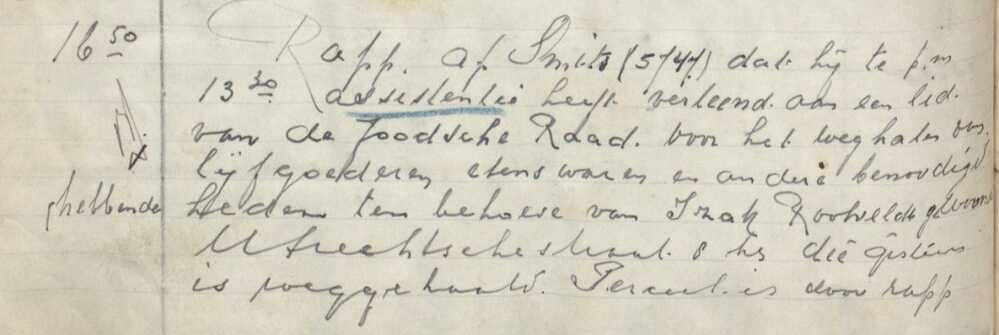 16 50 Rapp. af Smits (5/47) dat hij te p.m
13 30 assistentie heeft verleend aan een lid
van de Joodsche Raad. voor het weghalen van
lijfgoederen etenswaren en andere benoodigd
heden ten behoeve van Izak Rootveldt gewoond
ghebbende
Utrechtschestraat 8 hs die gisteren
is weggehaald. Perceel is door rapp